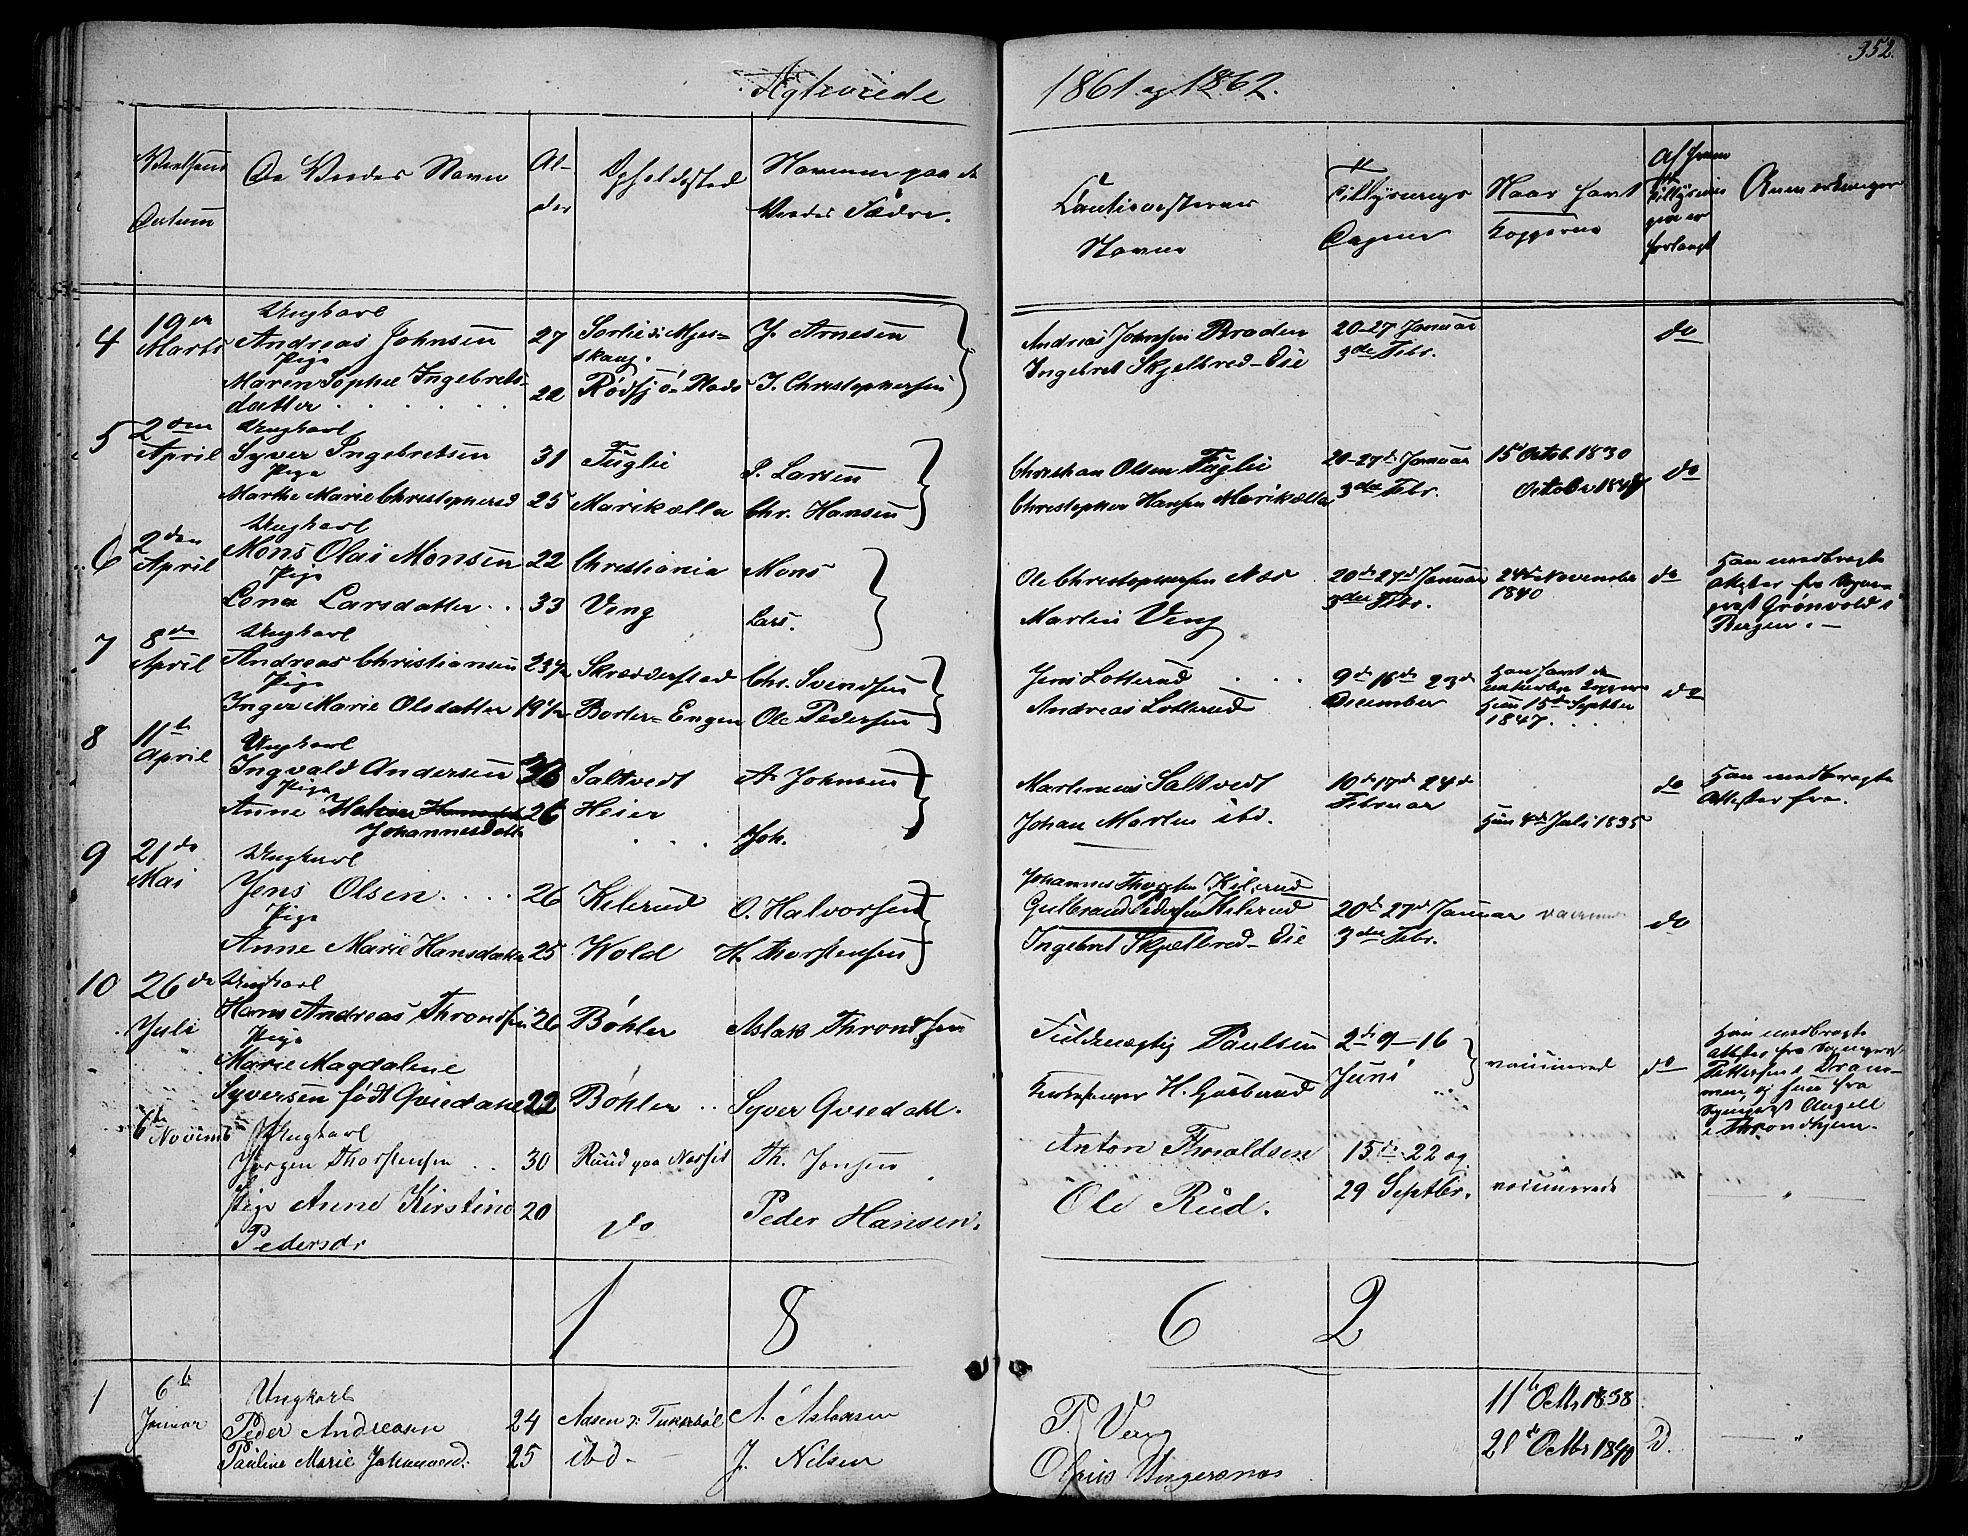 352.
Ægteviede 1861 og 1862.
Vielsens Datum
De Viedes Navn
Al-
der
Opholdssted
Navnene paa de
Viedes Fædre.
Cautionisternes
Navne
Tillysnings
Dagene
Naar havt
Kopperne
Af hvem
Tillysnin
gen er
forlangt
Anmerkninger
4 19de Marts
Ungkarl
Andreas Johnsen 27 J. Arnesen
Pige
Maren Sophie Ingebrets-
datter 22 Rødsjø-Plads J. Christophersen
Andreas Johnsen Braden
Ingebret Skjelbred-Eie
20-27 Januar
3die Febr.
do
5 2den April
Ungkarl
Syver Ingebretsen 31 Fuglie P. Larsen
Pige
Marthe Marie Christophersd 25 Marikælla Chr. Hansen
Christian Olsen Fuglie
Christopher Hansen Marikælla
20-27de Januar
3die Febr.
15d Octob. 1830
October
do
6 2den April
Ungkarl
Mons Olai Monsen 22 Christiania Mons
Pige
Lena Larsdatter 33 Veng Lars.
Ole Christophersen Næs
Martin Veng
20de 27de Januar
3die Febr.
24de November
1840
do
Han medbragte
Attester fra Sogne-
præst Grønvold i
Bergen.
7 8de April
Ungkarl
Andreas Christiansen 23½ Skrædderstad Chr. Svendsen
Pige
Inger Marie Olsdatter 19½ Borter-Engen Ole Pedersen
Jens Lotterud
Andreas Lotterud
9de 16de 23de
December
Han havt de
naturlige Kopper
Hun 15de Septber
1847.
do
8 11te April
Ungkarl
Ingvald Andersen Saltvedt A. Johnsen
Pige
Anne Helene
Johannesdatt 26 Heier Joh.
Martinius Saltvedt
Johan Martin ibd.
10de 17de 24de
Februar
Hun 4de Juli 1835
do
Han medbragte
Attester fra.
9 21de Mai
Ungkarl
Jens Olsen 26 Kilerud O. Halvorsen
Pige
Anne Marie Hansdatter 25 Wold H. Thorstensen
Johannes Thorsten Kilerud
Gulbrand Pedersen Kilerud
Ingebret Skjelbred-Eie
20de 27de Januar
3die Febr.
do
10 26de Juli
Ungkarl
Hans Andreas Throndsen 26 Bøhler Aslak Throndsen
Pige
Marie Magdalene
Syversen født Qviedahl 22 Bøhler Syver Qviedahl.
Fuldmægtig Paulsen
Kirkesanger H. Gusberud
2de 9-16
Juni
vaccinerede
do
Han medbragte
Attest fra Sognepræst
Pettersen i Dram-
men og hun fra
Sognepræst Angell
i Throndhjem.
6te Novemb
Ungkarl
Jørgen Thorstensen 30 Ruud paa Næsset Th. Jonsen
Pige Anne Kirstine 20 do Peder Hansen.
Pedersdr
Anton Thoraldsen
Ole Rud.
15de 22 og
29 Septbr.
vaccinerede
"
1 8 6 2
1 6te Januar
Ungkarl
Peder Andreasen 24 Aasen A. Aslaksen
Pauline Marie Johannesd. 25 ibd. J. Nilsen
P. Veng
11te Octbr 1838
21de Octbr 1840
D.
"